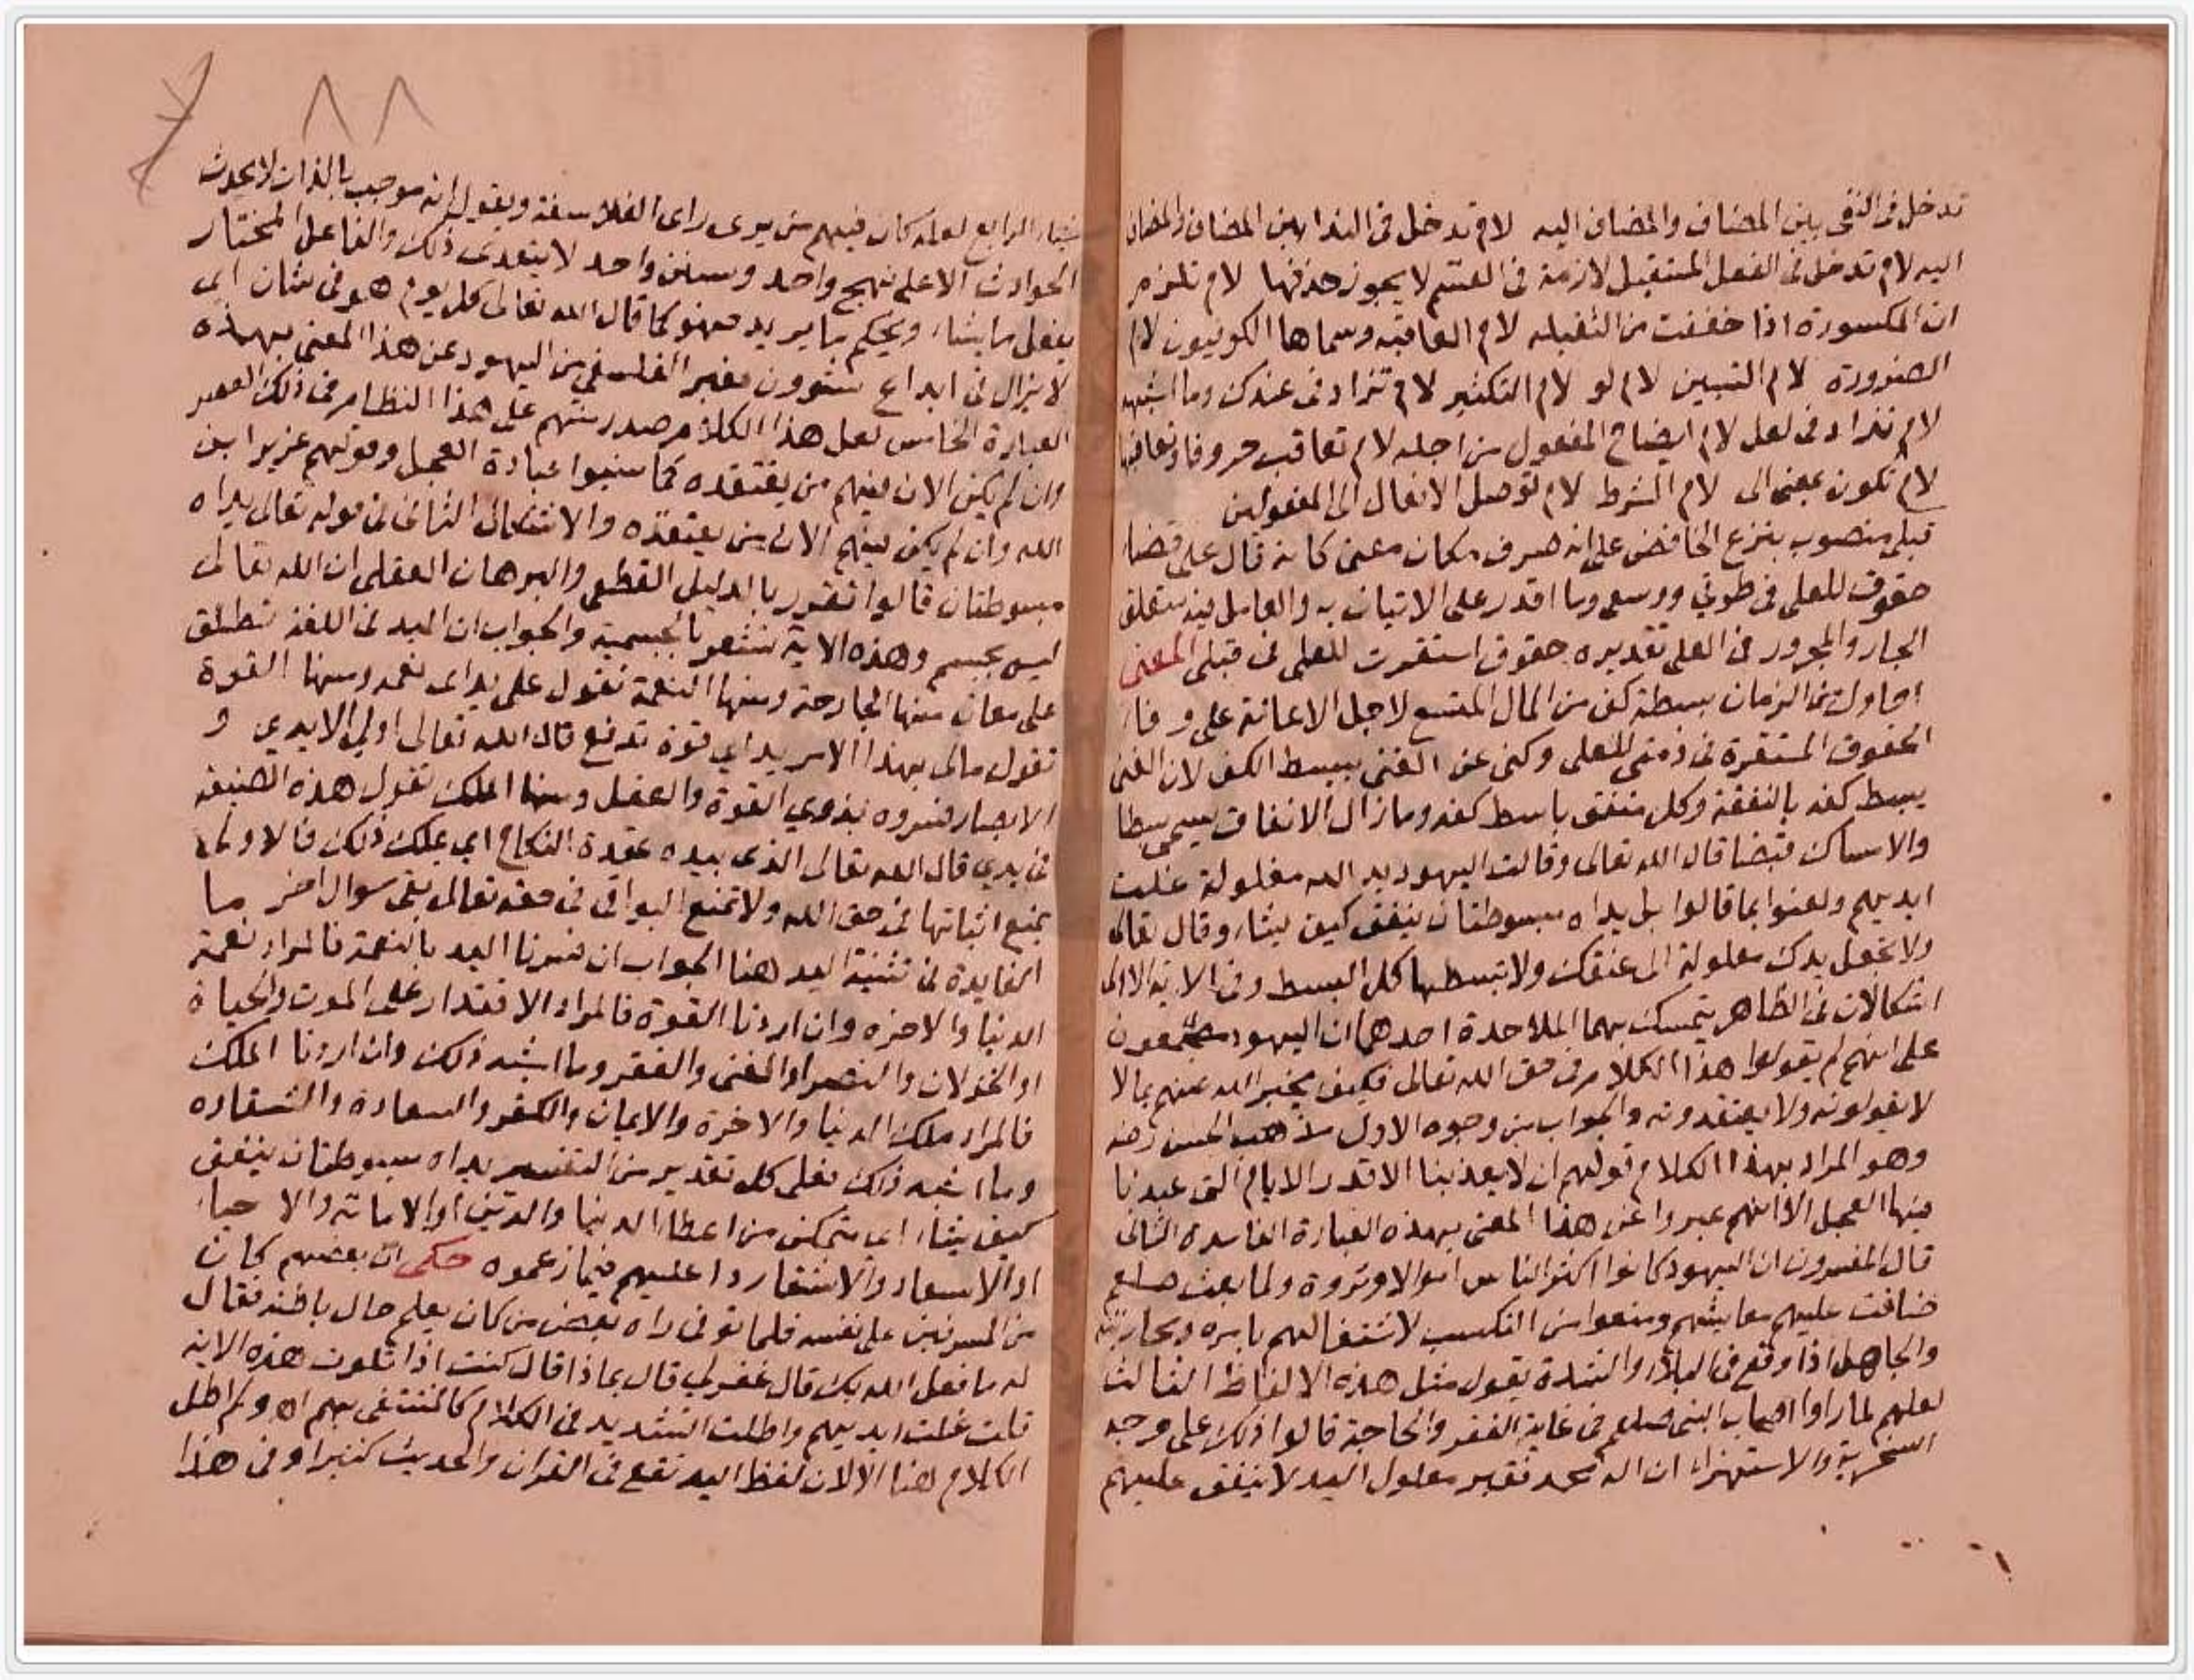 تدخل فى النفى بين المضاف والمضاف اليه لام تدخل فى الندا بين المضاف والمضاف
اليه لام تدخل فى الفعل المستقبل لازمة فى القسم لا يجوز حذفها لام تلزم
ان المكسورة اذا خففت من الثقيله لام العاقبه وسماها الكوفيون لام
الصيرورة لام التبيين لام لو لام التكثير لام تزاد فى عندك وما اشبهه
لام تزاد فى لعل لام ايضاح المفعول من اجله لام تعاقب حروفا وتعاقبها
لام تكون بمعنى الى لام الشرط لام توصل الافعال الى المفعولين
قبلى منصوب بنزع الخافض على انه صرف مكان معنى كانه قال على قضاء
حقوق للعلى فى طوقي ووسعى وما اقدر على الاتيان به والعامل فيه متعلق
الجار والمجرور فى العلى تقديره حقوق استقرت للعلى فى قبلى المعنى
احاول من الزمان بسطة كف من المال المتسع لاجل الاعانة على وفاء
الحقوق المستقرة فى ذمتى للعلى وكنى عن الغنى ببسط الكف لان الغنى
يبسط كفه بالنفقة وكل منفق باسط كفه وما زال الانفاق يسمى بسطا
والامساك قبضا قال الله تعالى وقالت اليهود يد الله مغلولة غلت
ايديهم ولعنوا بما قالوا بل يداه مبسوطتان ينفق كيف يشاء وقال تعالى
ولا تجعل يدك مغلولة الى عنقك ولا تبسطها كل البسط وفى الاية الاولى
اشكالان فى الظاهر يتمسك بهما الملاحدة احدهما ان اليهود مجمعون
على انهم لم يقولوا هذا الكلام فى حق الله تعالى فكيف يخبر الله عنهم بما لا
لا يقولونه ولا يعتقدونه والجواب من وجوه الاول مذهب الحسن رضه
وهو المراد بهذا الكلام قولهم ان لا يعذبنا الا قدر الايام التى عبدنا
فيها العجل الا انهم عبروا عن هذا المعنى بهذه العبارة الفاسدة الثانى
قال المفسرون ان اليهود كانوا اكثر الناس اموالا وثروة ولما بعث صلعم
ضاقت عليهم معايشهم ومنعوا من التكسب لاشتغالهم بامره ومحاربته
والجاهل اذا وقع فى البلاء والشدة يقول مثل هذه الالفاظ الثالث
لعلهم لما راوا اصحاب النبى صلعم فى غاية الفقر والحاجة قالوا ذلك على وجه
السخرية والاستهزاء ان اله محمد فقير مغلول اليد لا ينفق عليهم
٨٨
شياء الرابع لعله كان فيهم من يرى راى الفلاسفة ويقول انه موجب بالذات لا يحدث
الحوادث الا على نهج واحد وسنن واحد لا يتعدى ذلك والفاعل المختار
يفعل ما يشاء ويحكم ما يريد فهو كما قال الله تعالى كل يوم هو فى شان اى
لا يزال فى ابداع شوون فعبر الفلسفي من اليهود عن هذا المعنى بهذه
العبارة الخامس لعل هذا الكلام صدر منهم على هذا النظام فى ذلك العصر
وان لم يكن الان فيهم من يعتقده كما نسبوا عبادة العجل وقولهم عزير ابن
الله وان لم يكن فيهم الان من يعتقده والاشكال الثانى فى قوله تعالى يداه
مبسوطتان قالوا تقرر بالدليل القطعى والبرهان العقلى ان الله تعالى
ليس بجسم وهذه الاية تشعر بالجسمية والجواب ان اليد فى اللغة تطلق
على معان منها الجارحة ومنها النعمة تقول على يد اى نعمه ومنها القوة
تقول مالى بهذا الامر يد اي قوة تدفع قال الله تعالى اولي الايدي و
الابصار فسروه بذوي القوة والعقل ومنها الملك تقول هذه الضيعة
فى يدي قال الله تعالى الذى بيده عقدة النكاح اي يملك ذلك فالاولى
يمتنع اثباتها فى حق الله ولا تمتنع البواقى فى حقه تعالى بقى سوال اخر ما
الفايدة فى تثنية اليد هنا الجواب ان فسرنا اليد بالنعمة فالمراد نعمة
الدنيا والاخره وان اردنا القوة فالمراد الاقتدار على الموت والحياة
او الخذلان والنصر او الغنى والفقر وما اشبه ذلك وان اردنا الملك
فالمراد ملك الدنيا والاخرة والايمان والكفر والسعادة والشقاوه
وما اشبه ذلك فعلى كل تقدير من التفسير يداه مبسوطتان ينفق
كيف يشاء اى متمكن من اعطا الدنيا والدين او الاماتة والاحياء
او الاسعاد والاشقا ردا عليهم فيما زعموه حكى ان بعضهم كان
من المسرفين على نفسه فلما توفى راه بعض من كان يعلم حال باطنه فقال
له ما فعل الله بك قال غفر لي قال بماذا قال كنت اذا تلوت هذه الاية
قلت غلت ايديهم واطلت التشديد فى الكلام كالمتشفى بهم اه ولم اطل
الكلام هنا الا لان لفظ اليد تقع فى القران والحديث كثيرا وفى هذا